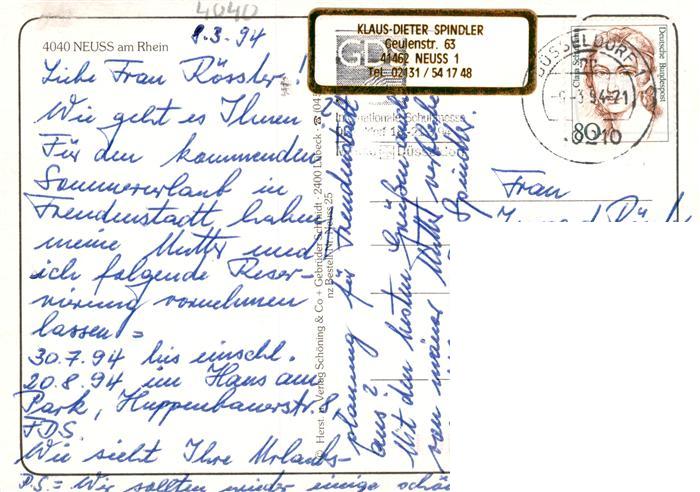 4040
8.3.94
4040 NEUSS am Rhein
KLAUS-DIETER SPINDLER
Geulenstr. 63
41462 NEUSS 1
Tel. 02131 / 54 17 48
Deutsche Bundespost
Clara Schumann
80
DÜSSELDORF
-9.-3.94-21
Liebe Frau Rössler!
Wie geht es Ihnen?
Für den kommenden
Sommerurlaub in
Freudenstadt, haben
meine Mutter und
ich folgende Reser-
vierung vornehmen
lassen =
30.7.94 bis einschl.
20.8.94 im Haus am
Park, Huppenbauerstr. 8,
FDS
Wie sieht Ihre Urlaubs-
planung für Freudenstadt
aus?
Mit den besten Grüßen auch
von meiner Mutter verbleibe
Spindler.
P.S. = Wir sollten wieder einige
© Herst. u. Verlag Schöning & Co + Gebrüder Schmidt · 2400 Lübeck
Bestell-Nr. Neuss 25
Frau